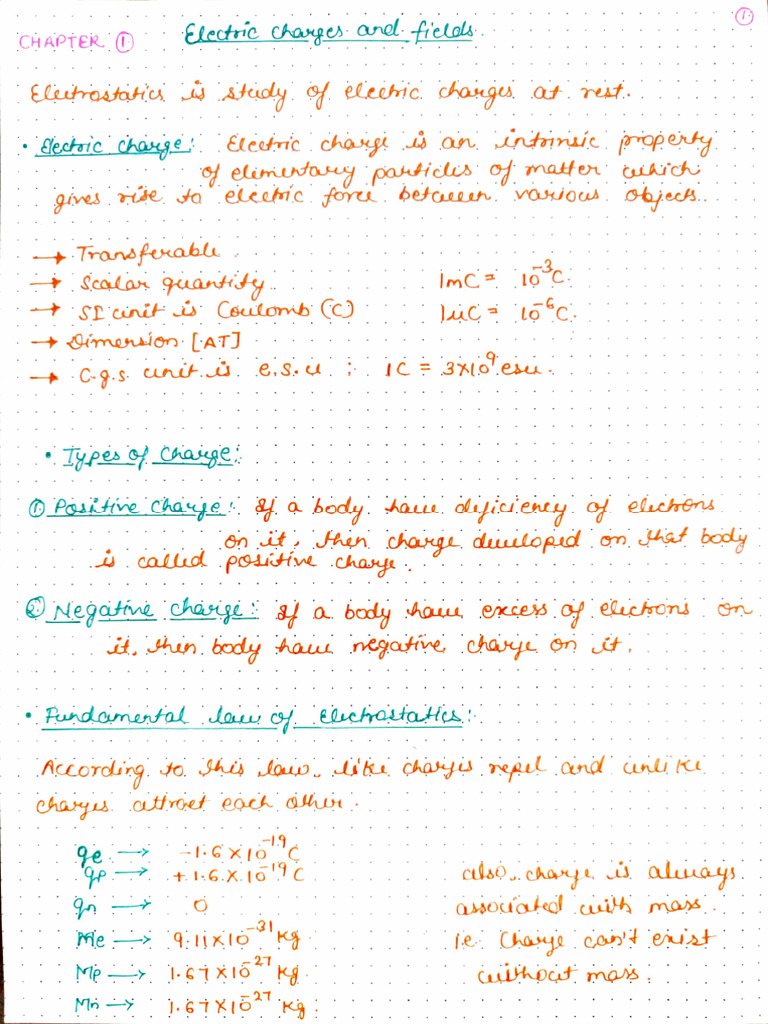 ①
CHAPTER ①
Electric charges and fields.
Electrostatics is study of electric charges at rest.
• Electric charge: Electric charge is an intrinsic property
of elementary particles of matter which
gives rise to electric force between various objects.
→ Transferable
→ Scalar quantity
→ SI unit is Coulomb (C)
→ Dimension [AT]
→ C.g.s unit is e.s.u : 1C = 3×10⁹ esu.
1mC = 10⁻³C.
1μC = 10⁻⁶C.
• Types of Charge:
① Positive Charge: If a body have deficiency of electrons
on it, then charge developed on that body
is called positive charge.
② Negative charge: If a body have excess of electrons on
it, then body have negative charge on it.
• Fundamental law of Electrostatics:
According to this law, like charges repel and unlike
charges attract each other.
qe → -1.6×10⁻¹⁹C
qp → +1.6×10⁻¹⁹C
qn → 0
Me → 9.11×10⁻³¹ Kg
Mp → 1.67×10⁻²⁷ Kg
Mn → 1.67×10⁻²⁷ Kg.
also, charge is always
associated with mass
i.e. Charge can't exist
without mass.